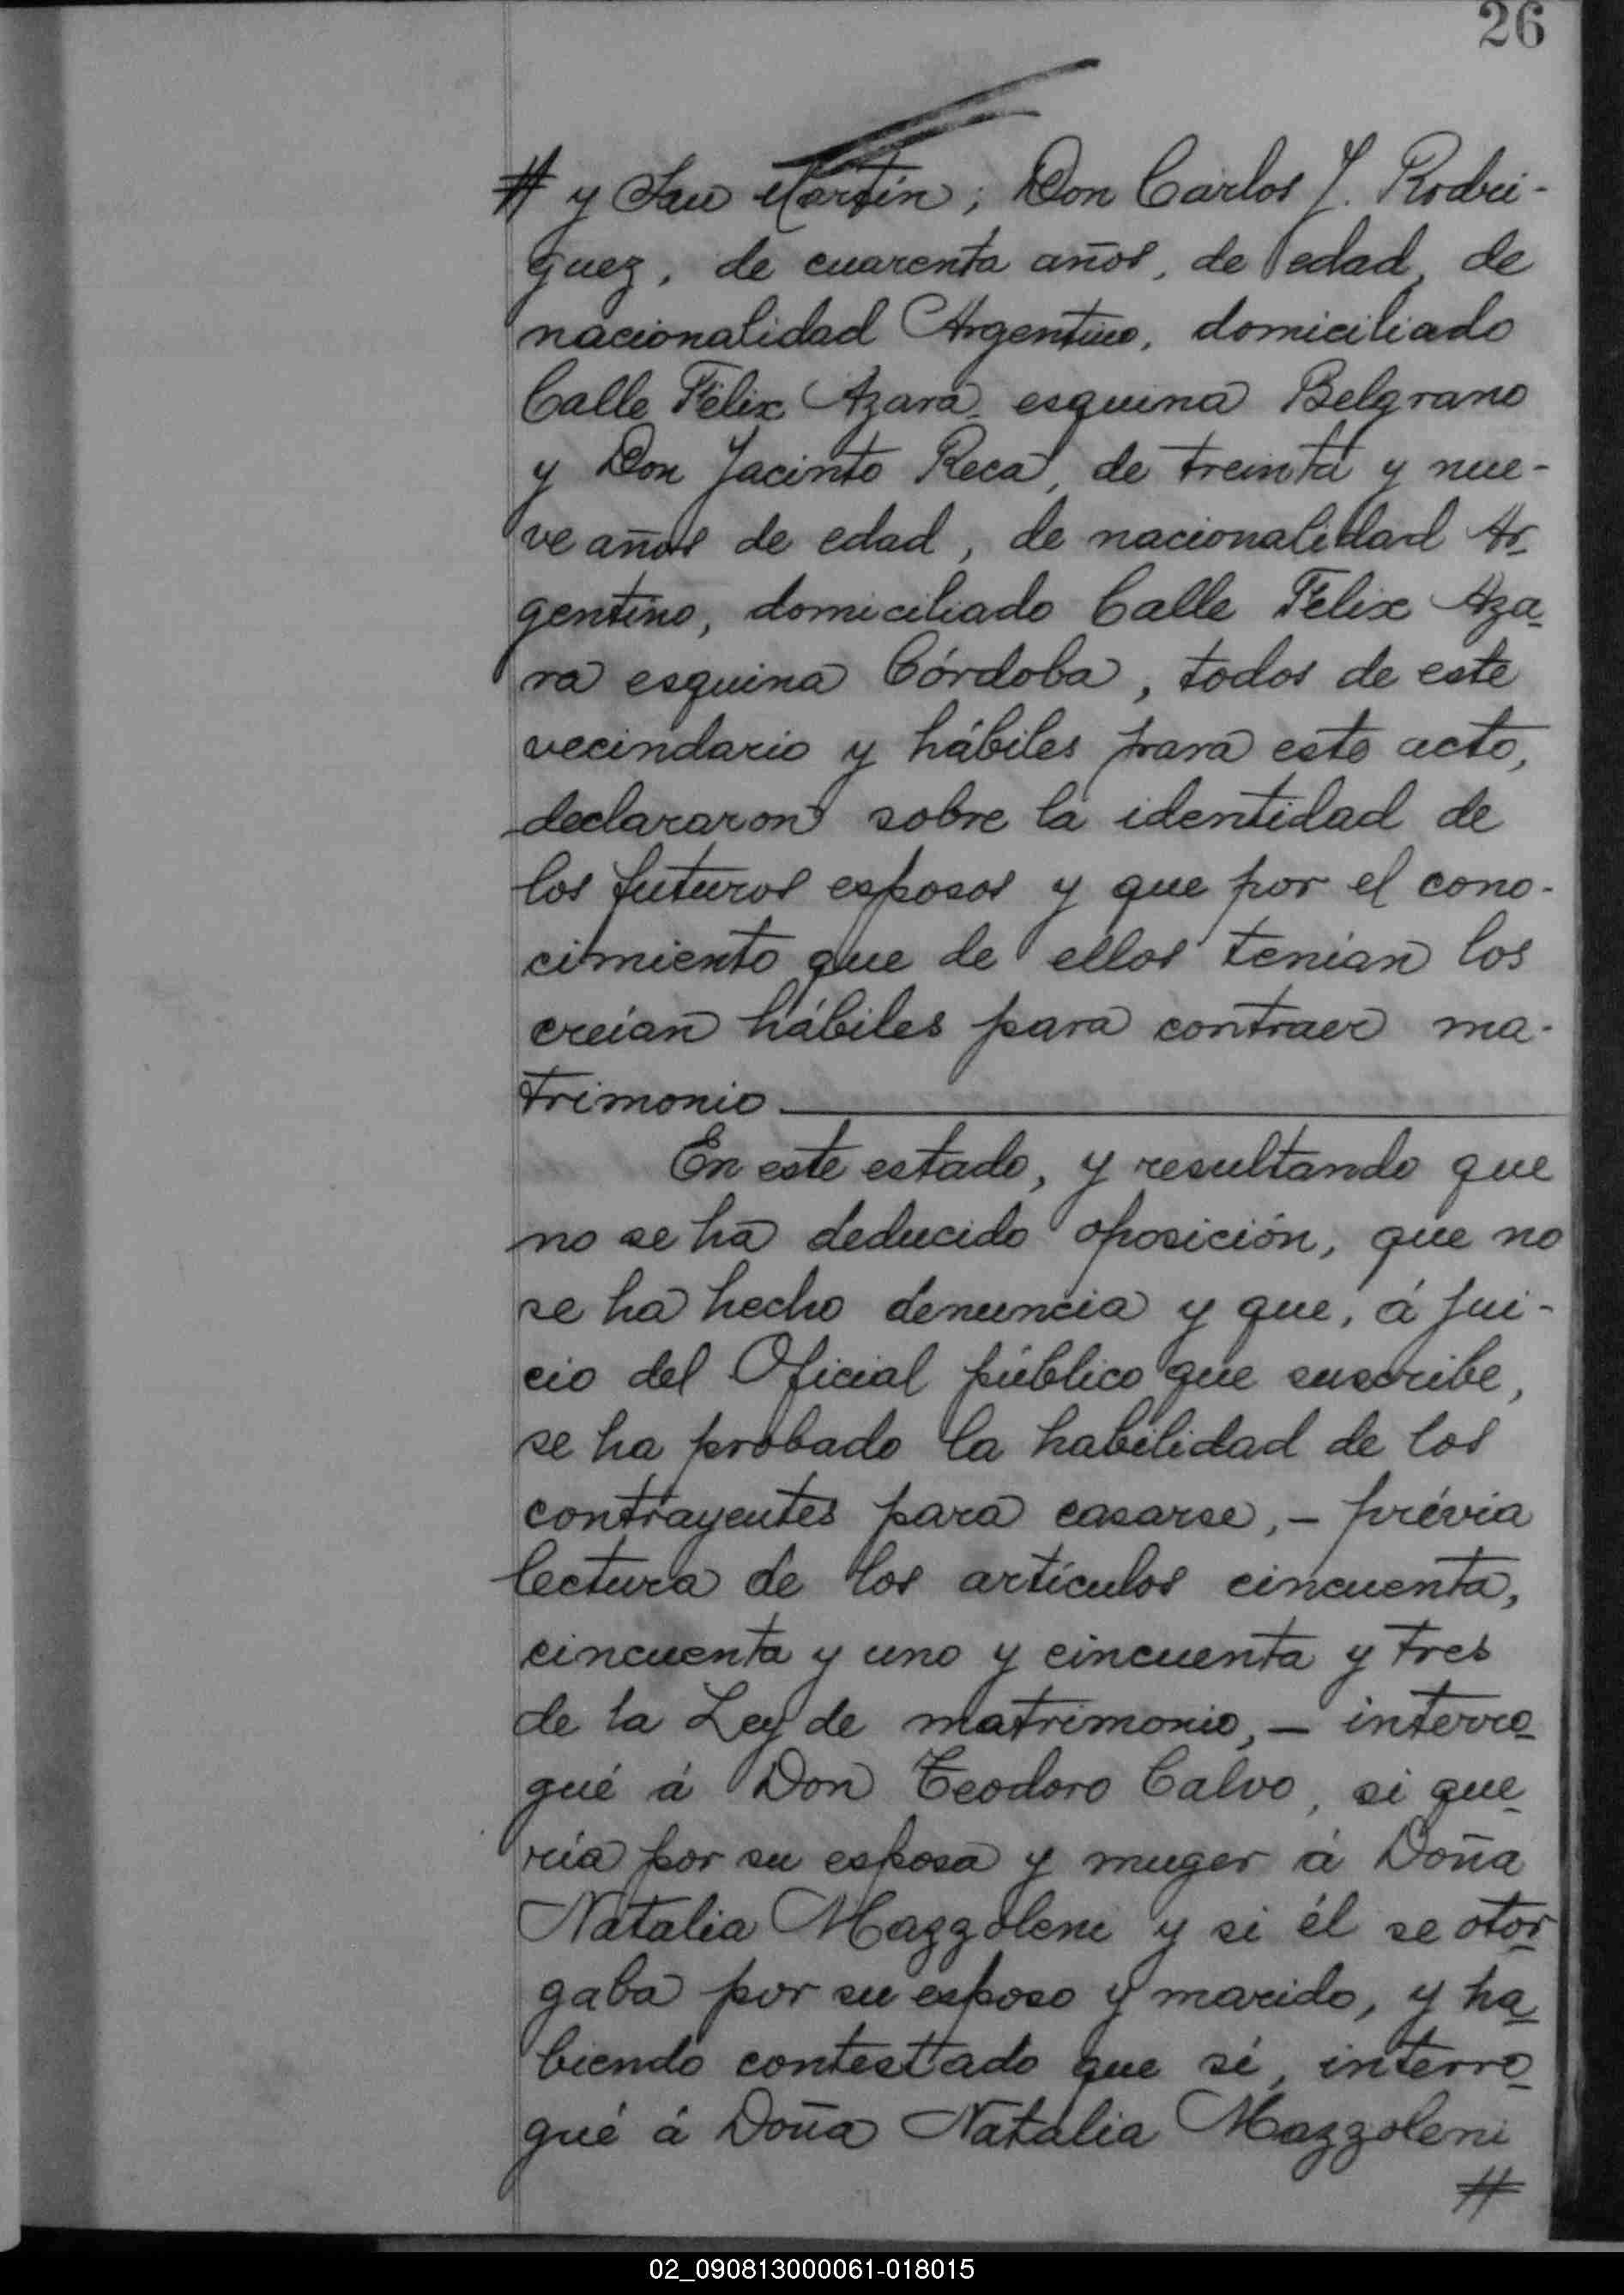 26
# y San Martín; Don Carlos J. Rodri-
guez, de cuarenta años, de edad, de
nacionalidad Argentino, domiciliado
Calle Félix Azara esquina Belgrano
y Don Jacinto Reca, de treinta y nue-
ve años de edad, de nacionalidad Ar-
gentino, domiciliado Calle Félix Aza-
ra esquina Córdoba, todos de este
vecindario y hábiles para este acto,
declararon sobre la identidad de
los futuros esposos y que por el cono-
cimiento que de ellos tenían los
creían hábiles para contraer ma-
trimonio
En este estado, y resultando que
no se ha deducido oposición, que no
se ha hecho denuncia y que, á jui-
cio del Oficial público que suscribe,
se ha probado la habilidad de los
contrayentes para casarse, – prévia
lectura de los artículos cincuenta,
cincuenta y uno y cincuenta y tres
de la Ley de matrimonio, – interro-
gué á Don Teodoro Calvo, si que-
ría por su esposa y muger á Doña
Natalia Mazzoleni y si él se otor-
gaba por su esposo y marido, y ha-
biendo contestado que sí, interro-
gué á Doña Natalia Mazzoleni
#
02_090813000061-018015